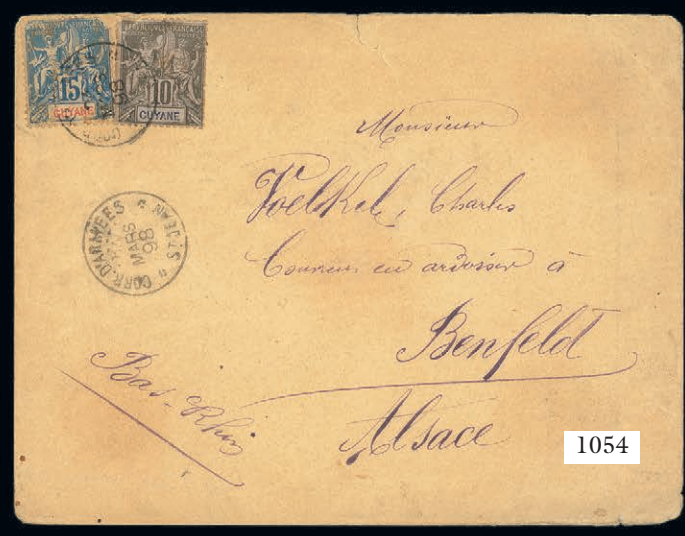 15
GUYANE
10
GUYANE
CORR. D'ARMEES
ST JEAN
MARS
98
Monsieur
Voelkel, Charles
Couvreur en ardoises à
Benfeldt
Bas-Rhin
Alsace
1054